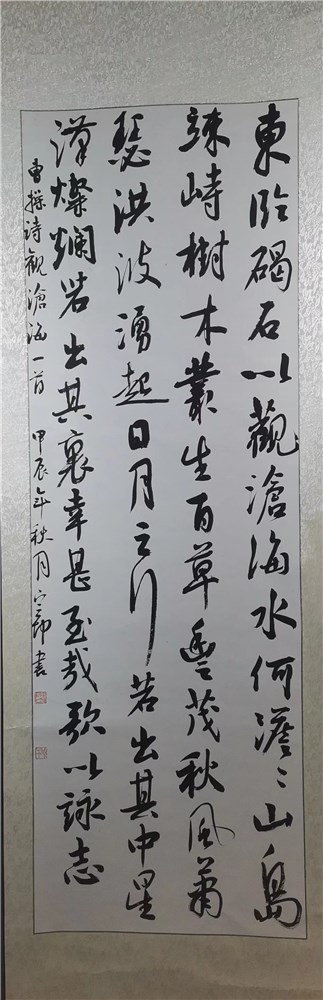 東臨碣石以觀滄海水何澹〻山島
竦峙樹木叢生百草豐茂秋風蕭
瑟洪波湧起日月之行若出其中星
漢燦爛若出其裏幸甚至哉歌以詠志
曹操詩觀滄海一首 甲辰年秋月 書